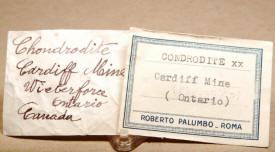 Chondrodite
Cardiff Mine
Wilberforce
Ontario
Canada
CONDRODITE xx
Cardiff Mine
( Ontario)
ROBERTO PALUMBO - ROMA